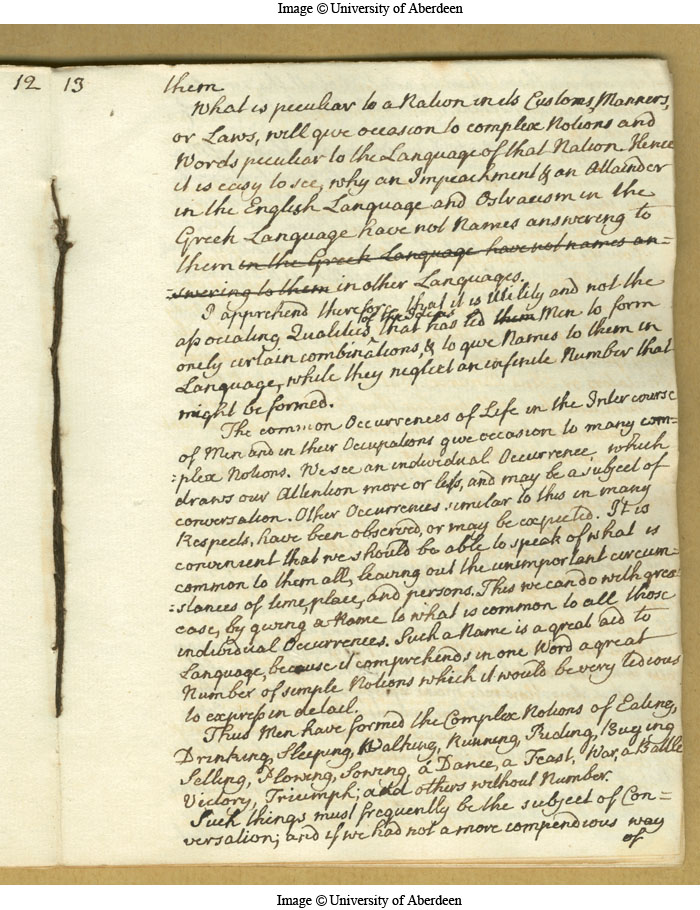 Image © University of Aberdeen
12 13
them
What is peculiar to a Nation in its Customs, Manners,
or Laws, will give occasion to complex Notions and
Words peculiar to the Language of that Nation. Hence
it is easy to see, why an Impeachment & an Attainder
in the English Language and Ostracism in the
Greek Language have not Names answering to
them in the Greek Language have not names an-
-swering to them in other Languages.
I apprehend therefore that it is Utility and not the
associating Qualities of the Ideas that has led them Men to form
only certain combinations, & to give Names to them in
Language, while they neglect an infinite Number that
might be formed.
The common Occurrences of Life in the Intercourse
of Men and in their Occupations give occasion to many com=
=plex Notions. We see an individual Occurrence, which
draws our Attention more or less, and may be a subject of
conversation. Other Occurrences similar to this in many
Respects, have been observed, or may be expected. It is
convenient that we should be able to speak of what is
common to them all, leaving out the unimportant circum=
=stances of time, place, and persons. This we can do with great
ease, by giving a Name to what is common to all those
individual Occurrences. Such a Name is a great aid to
Language, because it comprehends in one Word a great
Number of simple Notions which it would be very tedious
to express in detail.
Thus Men have formed the Complex Notions of Eating,
Drinking, Sleeping, Walking, Running, Riding, Buying
Selling, Plowing, Sowing, a Dance, a Feast, War, a Battle
Victory, Triumph; and others without Number.
Such things must frequently be the subject of Con=
versation; and if we had not a more compendious way
of
Image © University of Aberdeen